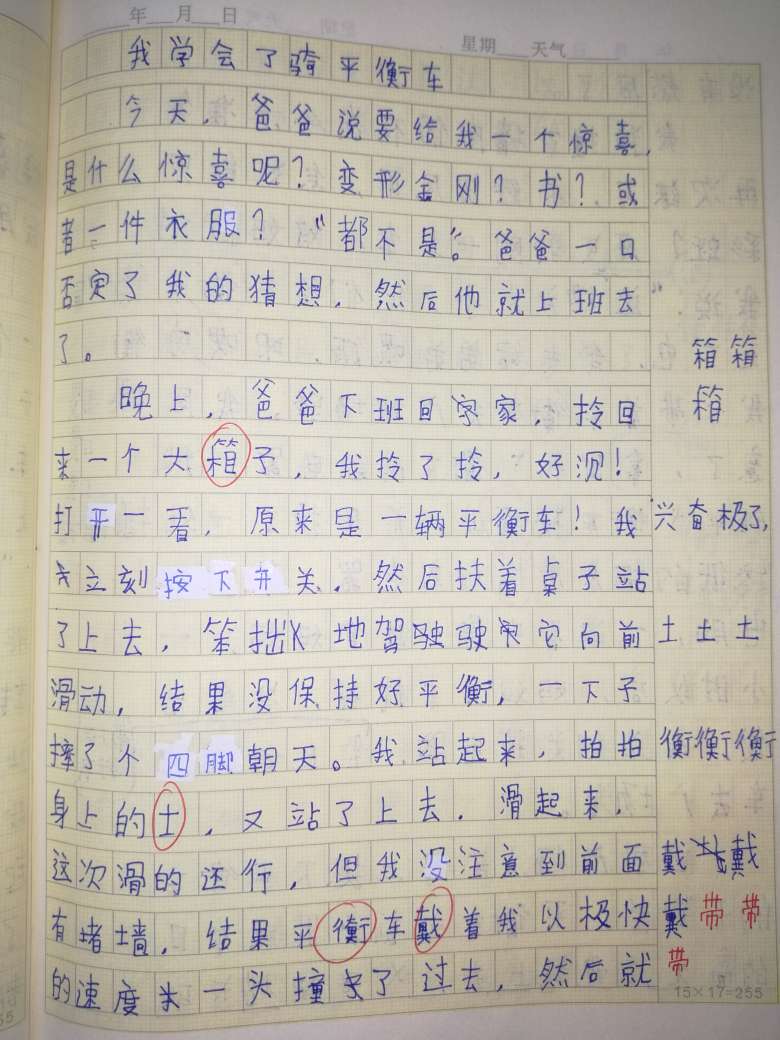 年 月 日
星期 天气
我学会了骑平衡车
今天，爸爸说要给我一个惊喜，
是什么惊喜呢？变形金刚？书？或
者一件衣服？“都不是”。爸爸一口
否定了我的猜想，然后他就上班去
了。
箱箱
晚上，爸爸下班回家，拎回
箱
来一个大箱子，我拎了拎，好沉！
打开一看，原来是一辆平衡车！我兴奋极了，
立刻按下开关，然后扶着桌子站
了上去，笨拙地驾驶它向前
土土土
滑动，结果没保持好平衡，一下子
摔了个四脚朝天。我站起来，拍拍
衡衡衡
身上的土，又站了上去，滑起来，
这次滑的还行，但我没注意到前面
戴 戴
有堵墙，结果平衡车戴着我以极快
戴带带
的速度一头撞了过去，然后就
带
15×17=255